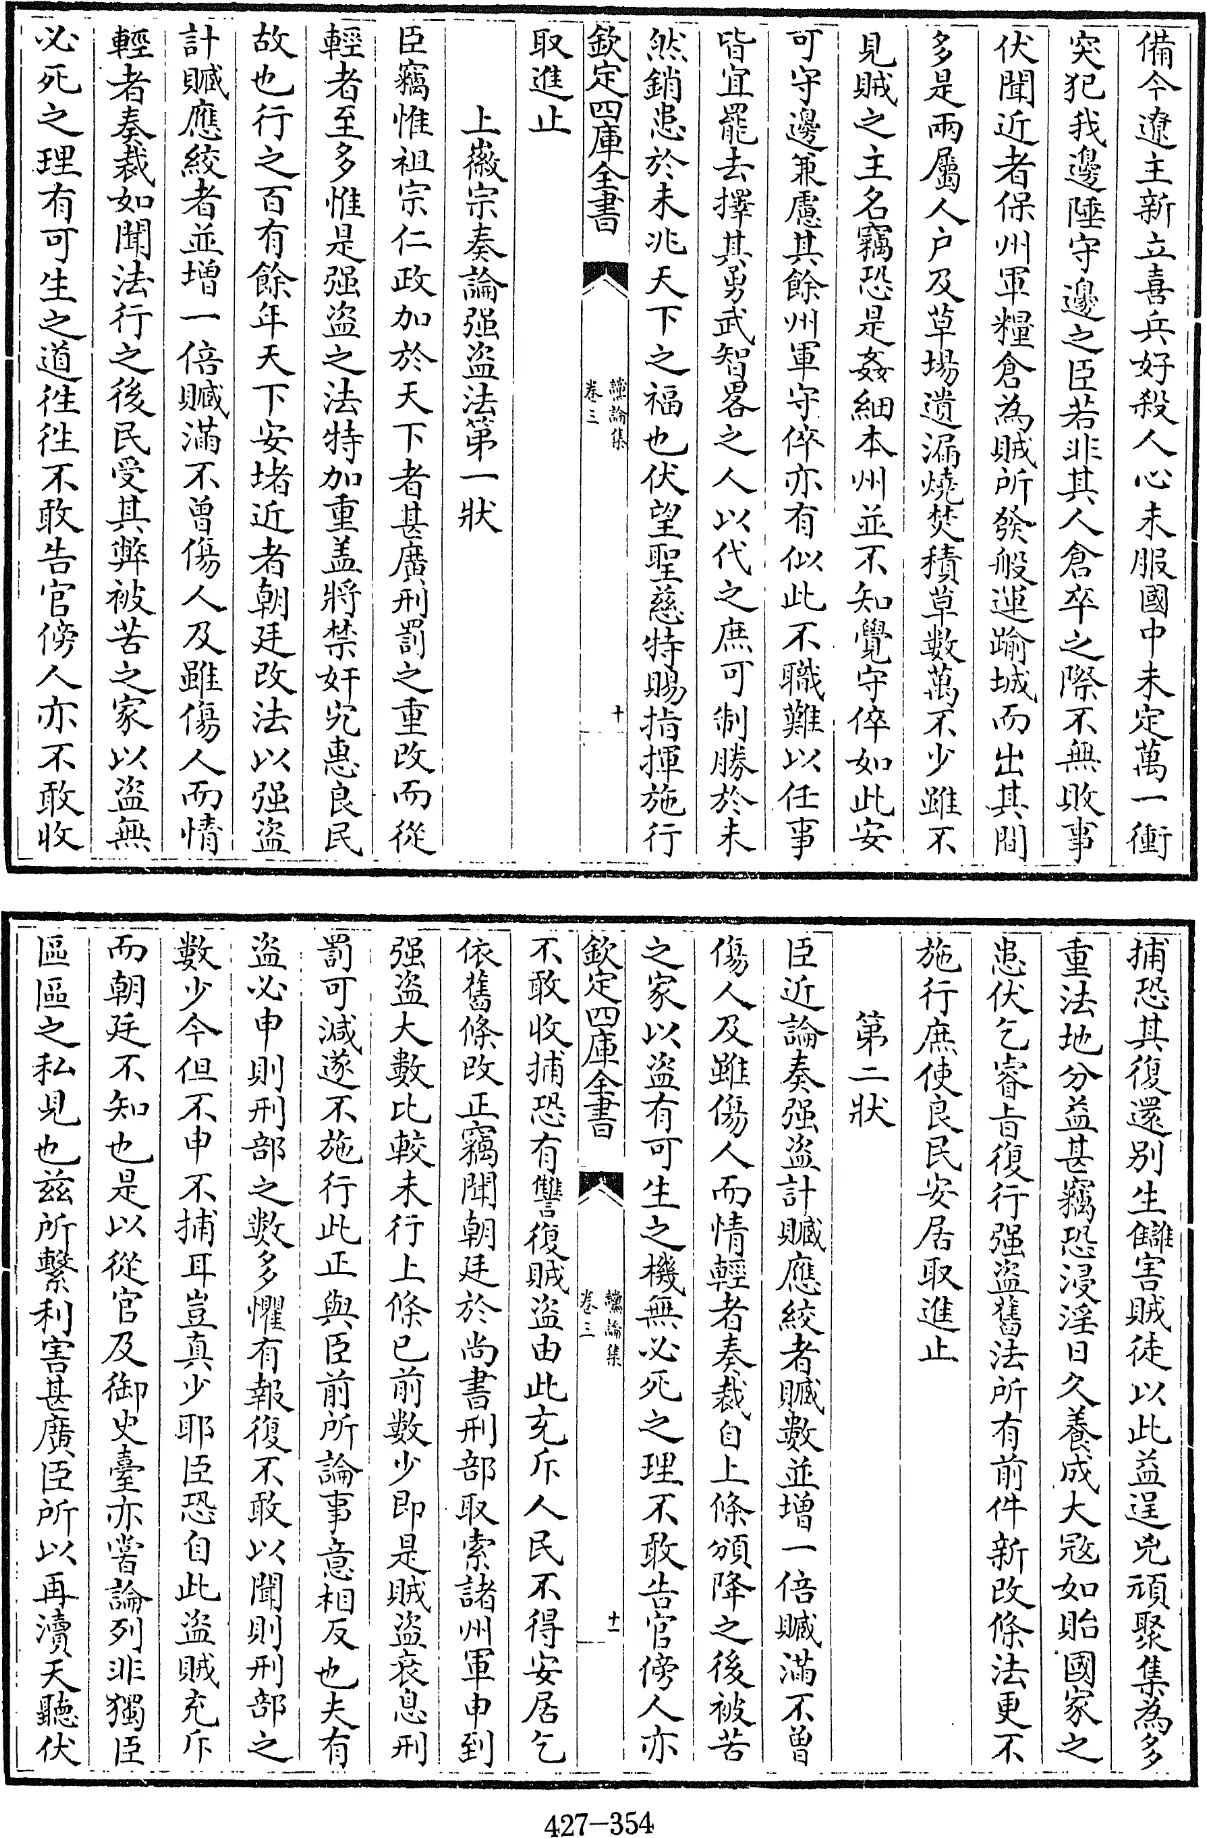 備今遼主新立喜兵好殺人心未服國中未定萬一衝
突犯我邊陲守邊之臣若非其人倉卒之際不無敗事
伏聞近者保州軍糧倉為賊所發般運踰城而出其間
多是兩屬人户及草場遺漏燒焚積草數萬不少雖不
見賊之主名竊恐是姦細本州並不知覺守倅如此安
可守邊兼慮其餘州軍守倅亦有似此不職難以任事
皆宜罷去擇其勇武智畧之人以代之庶可制勝於未
然銷患於未兆天下之福也伏望聖慈特賜指揮施行
欽定四庫全書
讜論集
卷三
十
取進止
上徽宗奏論强盜法第一狀
臣竊惟祖宗仁政加於天下者甚廣刑罰之重改而從
輕者至多惟是强盜之法特加重盖將禁奸宄惠良民
故也行之百有餘年天下安堵近者朝廷改法以强盜
計贓應絞者並增一倍贓滿不曾傷人及雖傷人而情
輕者奏裁如聞法行之後民受其弊被苦之家以盜無
必死之理有可生之道徃徃不敢告官傍人亦不敢收
捕恐其復還别生讎害賊徒以此益逞兇頑聚集為多
重法地分益甚竊恐浸淫日久養成大冦如貽國家之
患伏乞睿旨復行强盜舊法所有前件新改條法更不
施行庶使良民安居取進止
第二狀
臣近論奏强盜計贓應絞者贓數並增一倍贓滿不曾
傷人及雖傷人而情輕者奏裁自上條頒降之後被苦
之家以盜有可生之機無必死之理不敢告官傍人亦
欽定四庫全書
讜論集
卷三
十一
不敢收捕恐有讐復賊盜由此充斥人民不得安居乞
依舊條改正竊聞朝廷於尚書刑部取索諸州軍申到
强盜大數比較未行上條已前數少即是賊盜衰息刑
罰可減遂不施行此正與臣前所論事意相反也夫有
盜必申則刑部之數多懼有報復不敢以聞則刑部之
數少今但不申不捕耳豈真少耶臣恐自此盜賊充斥
而朝廷不知也是以從官及御史臺亦嘗論列非獨臣
區區之私見也兹所繫利害甚廣臣所以再瀆天聽伏
427-354